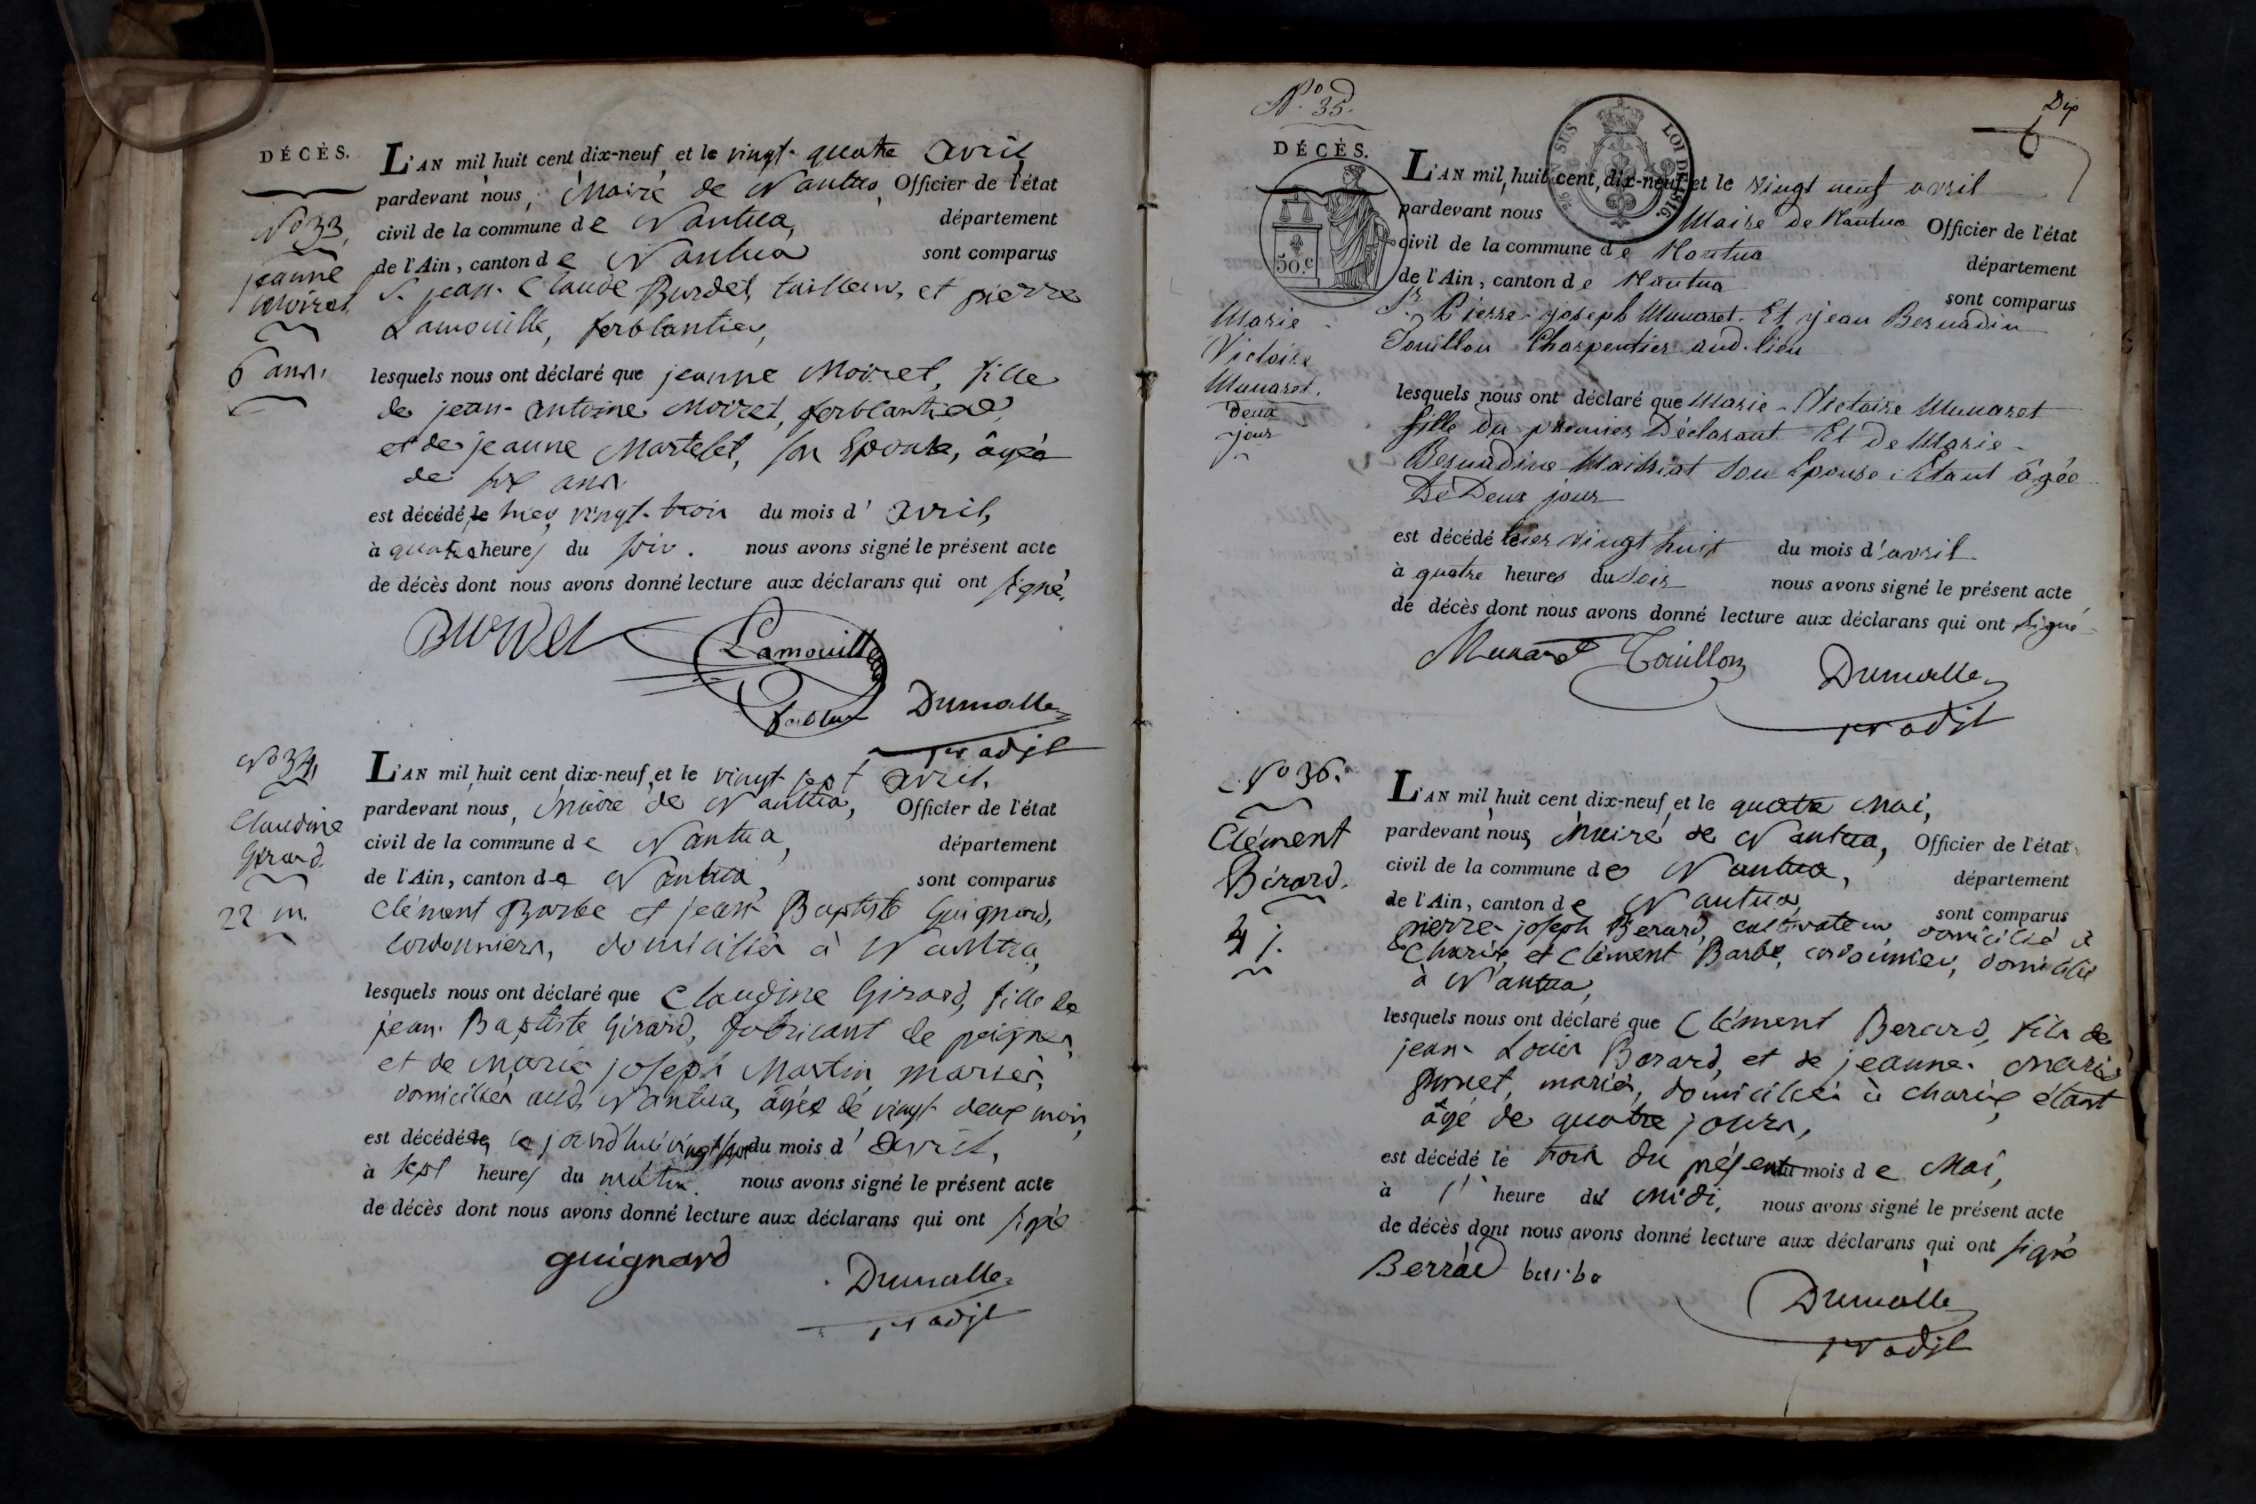 DÉCÈS.
N° 33,
jeanne
Moiret
6 ans.
L'AN mil huit cent dix-neuf et le vingt-quatre avril
pardevant nous, Maire de Nantua, Officier de l'état
civil de la commune de Nantua, département
de l'Ain, canton de Nantua sont comparus
S. jean-Claude Burdet, tailleur, et pierre
Lamouille, ferblantier,
lesquels nous ont déclaré que jeanne Moiret, fille
de jean-antoine Moiret, ferblantier,
et de jeanne Martelet, son Epouse, âgée
de six ans
est décédé le hier vingt-trois du mois d'avril,
à quatre heures du soir. nous avons signé le présent acte
de décès dont nous avons donné lecture aux déclarans qui ont signé.
Burdet Lamouille
Dumolle
1er adjt
N° 34,
Claudine
Girard.
22 m.
L'AN mil huit cent dix-neuf et le vingt sept avril,
pardevant nous, Maire de Nantua, Officier de l'état
civil de la commune de Nantua, département
de l'Ain, canton de Nantua, sont comparus
Clément Barbe et jean Baptiste Guignard,
cordonniers, domiciliés à Nantua,
lesquels nous ont déclaré que Claudine Girard, fille de
jean-Baptiste Girard, fabricant de peignes,
et de Marie joseph Martin, mariés,
domiciliés aud. Nantua, âgée de vingt-deux mois,
est décédée, le jourd'hui vingt sept du mois d'avril,
à sept heures du matin. nous avons signé le présent acte
de décès dont nous avons donné lecture aux déclarans qui ont signé
guignard
Dumolle
1er adjt
N° 35.
Dix
6
DÉCÈS.
LOI DE 1816.
50 c
Marie
Victoire
Munaret.
deux
jour
L'AN mil huit cent dix-neuf et le vingt neuf avril
pardevant nous Maire de Nantua Officier de l'état
civil de la commune de Nantua département
de l'Ain, canton de Nantua sont comparus
Sr. Pierre-joseph Munaret. Et jean Bernadin
Touillon Charpentier aud. lieu
lesquels nous ont déclaré que Marie-Victoire Munaret
fille du premier Déclarant Et de Marie-
Bernadine Maissiat son Epouse. Etant âgée
De Deux jour
est décédé hier vingt huit du mois d'avril
à quatre heures du soir nous avons signé le présent acte
de décès dont nous avons donné lecture aux déclarans qui ont signé
Munaret Touillon Dumolle
1er adjt
N° 36.
Clément
Bérard.
4 j.
L'AN mil huit cent dix-neuf et le quatre Mai,
pardevant nous, Maire de Nantua, Officier de l'état
civil de la commune de Nantua, département
de l'Ain, canton de Nantua, sont comparus
pierre-joseph Berard, cultivateur domicilié à
Charix, et Clément Barbe, cordonnier, domicilié
à Nantua,
lesquels nous ont déclaré que Clément Berard, fils de
jean-Louis Berard, et de jeanne-Marie
mariés, domiciliés à Charix, étant
âgé de quatre jours,
est décédé le trois du présent mois de Mai,
à l' heure de Midi. nous avons signé le présent acte
de décès dont nous avons donné lecture aux déclarans qui ont signé
Berrad barbe
Dumolle
1er adjt